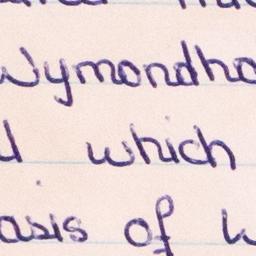 Wymondha
which
asis of